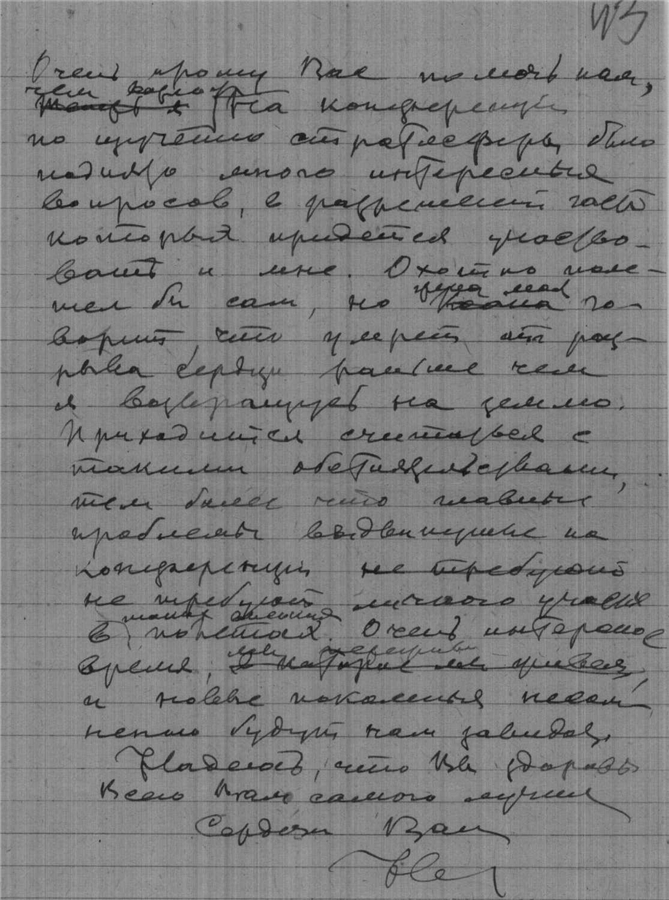 Очень прошу Вас помочь нам,
чем
На конференции
по изучению стратосферы было
поднято много интересных
вопросов, в разрешении части
которых придется участво-
вать и мне. Охотно поле-
тел бы сам, но жена моя го-
ворит, что умрет от раз-
рыва сердца раньше чем
я возвращусь на землю.
Приходится считаться с
такими обстоятельствами,
тем более что главные
проблемы выдвинутые на
конференции не требуют
не требуют личного участия
в полетах. Очень интересное
время, мы переживаем
и новые поколенья несом-
ненно будут нам завидов.
Надеюсь, что Вы здоровы
Всего Вам самого лучш
Сердечн Ваш